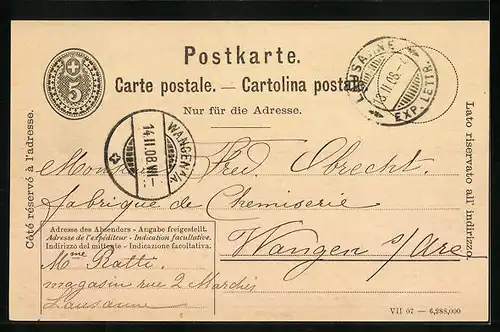 Postkarte.
Carte postale. — Cartolina postale.
Nur für die Adresse.
5
LAUSANNE
13.II.08.
EXP. LETTR.
WANGEN A/A.
14.II.08.VIII
Côté réservé à l'adresse.
Lato riservato all' indirizzo.
Monsieur Fred. Obrecht.
fabrique de Chemiserie
Wangen s/Are
Adresse des Absenders - Angabe freigestellt.
Adresse de l'expéditeur - Indication facultative.
Indirizzo del mittente - Indicazione facoltativa.
Mme Ratti.
magasin rue 2 Marchés
Lausanne
VII 07 — 6,288,000